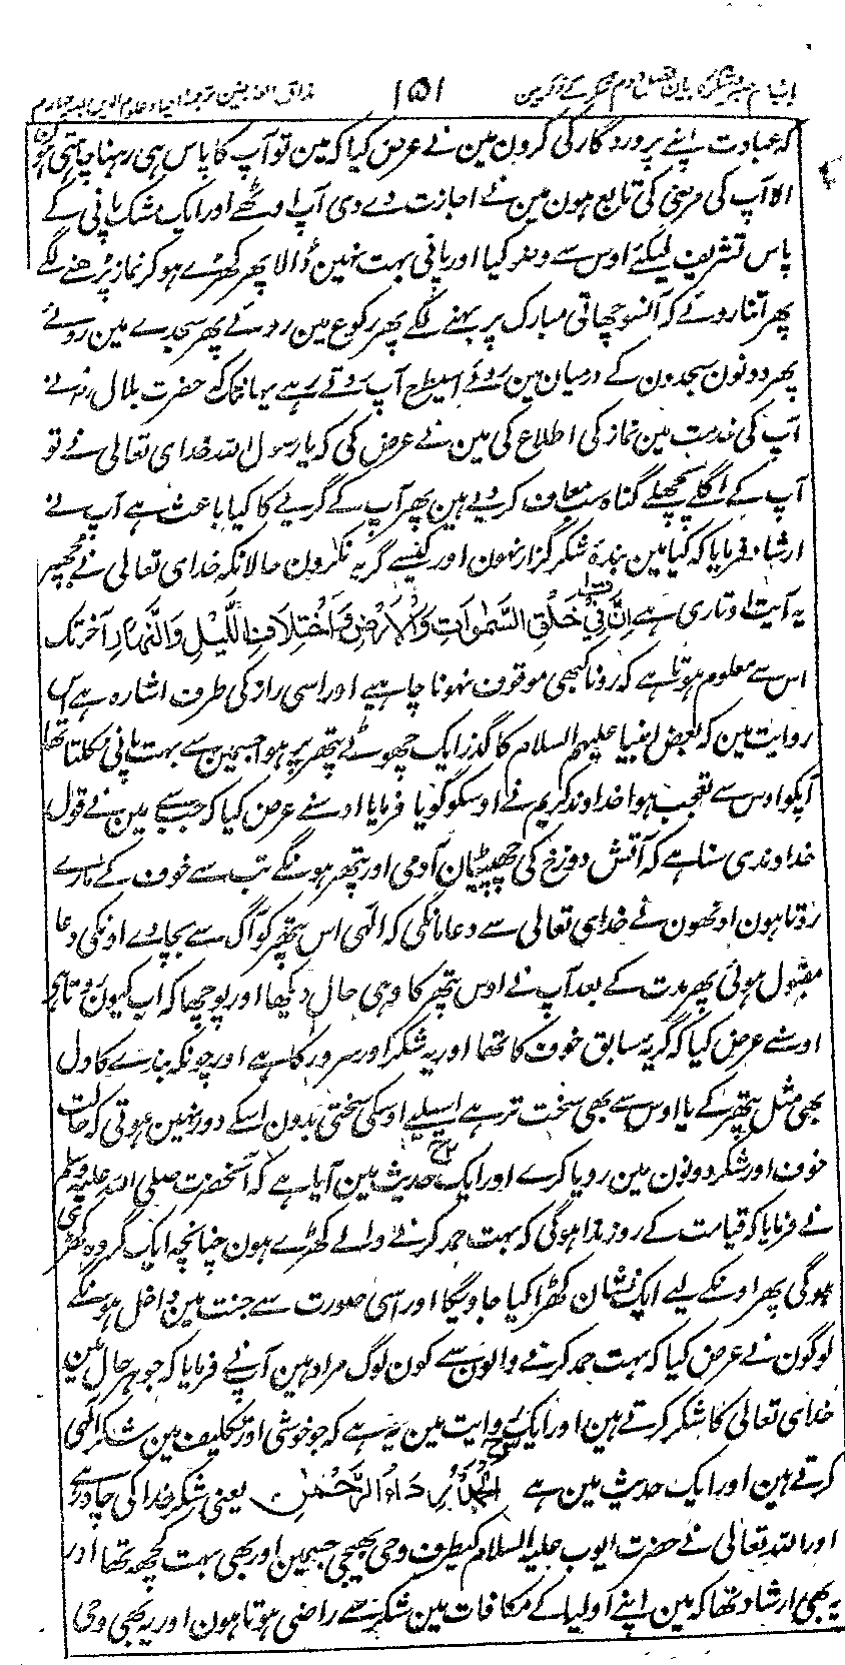 باب دوم صبر و شکر کا بیان فصل دوم شکر کے ذکر مین ۱۵۱ مذاق العارفین ترجمہ احیاء علوم الدین جلد چہارم
کہ عبادت اپنے پروردگار کی کرون مین نے عرض کیا کہ مین تو آپ کا پاس ہی رہنا چاہتی ہون
الا آپ کی مرضی کی تابع ہون مین نے اجازت دے دی آپ اوٹھے اور ایک مشک پانی کے
پاس تشریف لیگئے اوس سے وضو کیا اور پانی بہت نہین ڈالا پھر کھڑے ہو کر نماز پڑھنے لگے
پھر اتنا روئے کہ آنسو چھاتی مبارک پر بہنے لگے پھر رکوع مین روئے پھر سجدے مین روئے
پھر دونون سجدون کے درمیان مین روئے اسیطرح آپ روتے رہے یہانتک کہ حضرت بلال رضہ نے
آپ کی خدمت مین نماز کی اطلاع کی مین نے عرض کی کہ یا رسول اللہ خدای تعالی نے تو
آپ کے اگلے پچھلے گناہ سب معاف کر دیے ہین پھر آپ کے گریے کا کیا باعث ہے آپ نے
ارشاد فرمایا کہ کیا مین بندۂ شکر گزار نہون اور کیسے گریہ نکرون حالانکہ خدای تعالی نے مجھپر
یہ آیت اوتاری ہے اِنَّ فِیْ خَلْقِ السَّمٰوَاتِ وَالْاَرْضِ وَاخْتِلَافِ اللَّیْلِ وَالنَّهَارِ آخر تک
اس سے معلوم ہوتا ہے کہ رونا کبھی موقوف نہونا چاہیے اور اسی راز کی طرف اشارہ ہے اس
روایت مین کہ بعض انبیا علیہم السلام کا گذر ایک چھوٹے پتھر پر ہوا جسمین سے بہت پانی نکلتا تھا
آپکو اوس سے تعجب ہوا خداوند کریم نے اوسکو گویا فرمایا اوسنے عرض کیا کہ جب سے مین نے قول
خداوندی سنا ہے کہ آتش دوزخ کی چھپٹیان آدمی اور پتھر ہونگے تب سے خوف کے مارے
روتا ہون اونھون نے خدای تعالی سے دعا مانگی کہ الٰہی اس پتھر کو آگ سے بچا دے اونکی دعا
مقبول ہوئی پھر مدت کے بعد آپ نے اوس پتھر کا وہی حال دیکھا اور پوچھا کہ اب کیون روتا ہے
اوسنے عرض کیا کہ گریہ سابق خوف کا تھا اور یہ شکر اور سرور کا ہے اور چونکہ بندے کا دل
بھی مثل پتھر کے یا اوس سے بھی سخت تر ہے اسلیے اوسکی سختی بدون اسکے دور نہین ہوتی کہ حالت
خوف اور شکر دونون مین رویا کرے اور ایک حدیث مین آیا ہے کہ آنحضرت صلی اللہ علیہ وسلم
نے فرمایا کہ قیامت کے روز ندا ہوگی کہ بہت حمد کرنے والے کھڑے ہون چنانچہ ایک گروہ کھڑی
ہوگی پھر اونکے لیے ایک نشان کھڑا کیا جاویگا اور اسی صورت سے جنت مین داخل ہونگے
لوگون نے عرض کیا کہ بہت حمد کرنے والون سے کون لوگ مراد ہین آپنے فرمایا کہ جو ہر حال مین
خدای تعالی کا شکر کرتے ہین اور ایک روایت مین یہ ہے کہ جو خوشی اور تکلیف مین شکر الٰہی
کرتے ہین اور ایک حدیث مین ہے اَلْحَمْدُ رِدَاءُ الرَّحْمٰنِ یعنی شکر خدا کی چادر ہے
اور اللہ تعالی نے حضرت ایوب علیہ السلام کیطرف وحی بھیجی جسمین اور بھی بہت کچھ تھا اور
یہ بھی ارشاد تھا کہ مین اپنے اولیا کے مکافات مین شکر سے راضی ہوتا ہون اور یہ بھی وحی